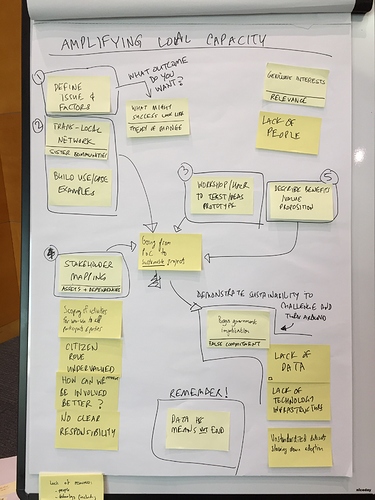 AMPLIFYING LOCAL CAPACITY
1
DEFINE
ISSUE &
FACTORS
WHAT OUTCOME
DO YOU
WANT?
WHAT MIGHT
SUCCESS LOOK LIKE
THEORY OF CHANGE
GENUINE INTERESTS
RELEVANCE
LACK OF
PEOPLE
2
TRANS-LOCAL
NETWORK
SISTER COMMUNITIES
BUILD USE/CASE
EXAMPLES
3
WORKSHOP/HACK
TO TEST/IDEAS
PROTOTYPE
5
DESCRIBE BENEFITS
VALUE
PROPOSITION
4
STAKEHOLDER
MAPPING
ASSETS + DEPENDENCIES
Going from
PoC to
project
DEMONSTRATE SUSTAINABILITY TO
CHALLENGE AND
TURN AROUND
government
FALSE COMMITMENT
Scoping of activities
CITIZEN
ROLE
UNDERVALUED
HOW CAN WE
BE INVOLVED
BETTER?
NO CLEAR
RESPONSIBILITY
LACK OF
DATA
LACK OF
TECHNOLOGY
INFRASTRUCTURE
REMEMBER!
DATA AS
MEANS NOT END
Unstandardized datasets
slowing down adoption
Lack of resources:
- people